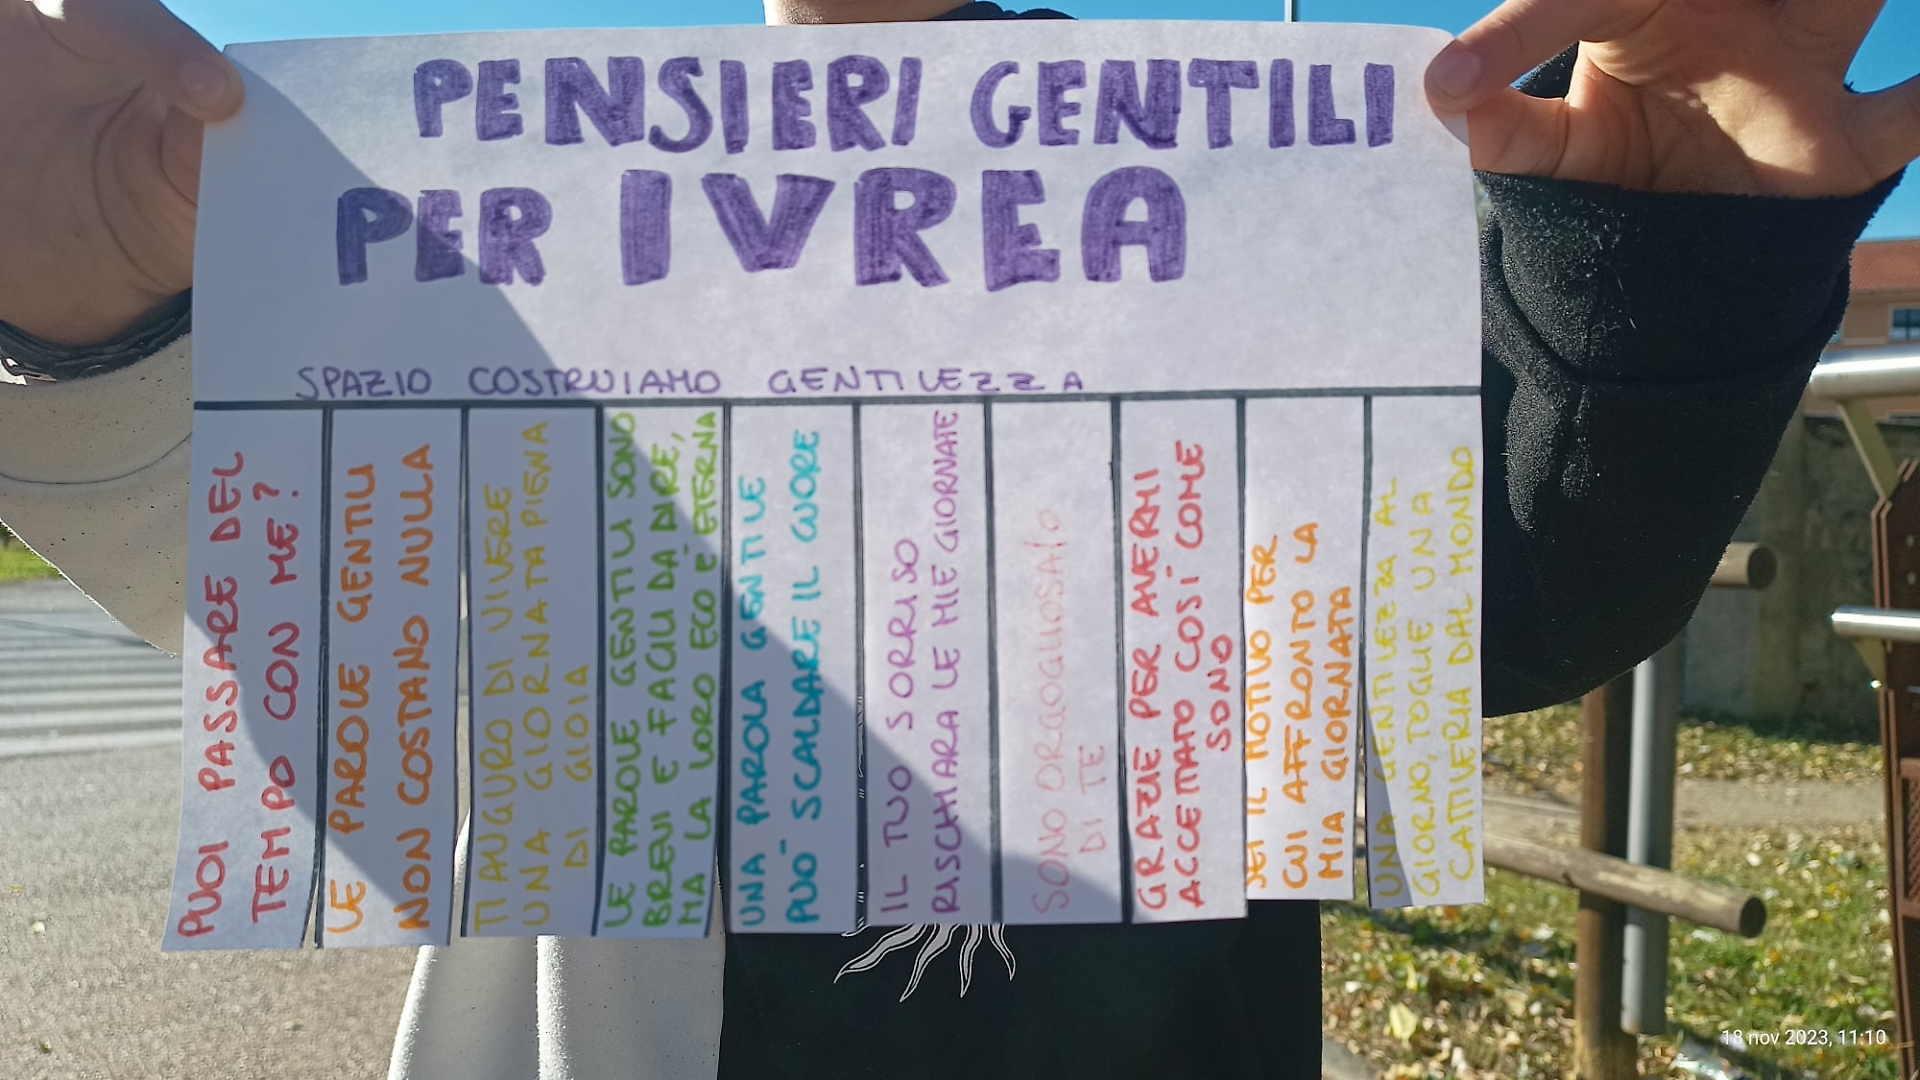 PENSIERI GENTILI
PER IVREA
SPAZIO COSTRUIAMO GENTILEZZA
PUOI PASSARE DEL
TEMPO CON ME?
LE PAROLE GENTILI
NON COSTANO NULLA
TI AUGURO DI VIVERE
UNA GIORNATA PIENA
DI GIOIA
LE PAROLE GENTILI SONO
BREVI E FACILI DA DIRE,
MA LA LORO ECO È ETERNA
UNA PAROLA GENTILE
PUÒ SCALDARE IL CUORE
IL TUO SORRISO
RISCHIARA LE MIE GIORNATE
SONO ORGOGLIOSA/O
DI TE
GRAZIE PER AVERMI
ACCETTATO COSÌ COME
SONO
SEI IL MOTIVO PER
CUI AFFRONTO LA
MIA GIORNATA
UNA GENTILEZZA AL
GIORNO, TOGLIE UNA
CATTIVERIA DAL MONDO
18 nov 2023, 11:10